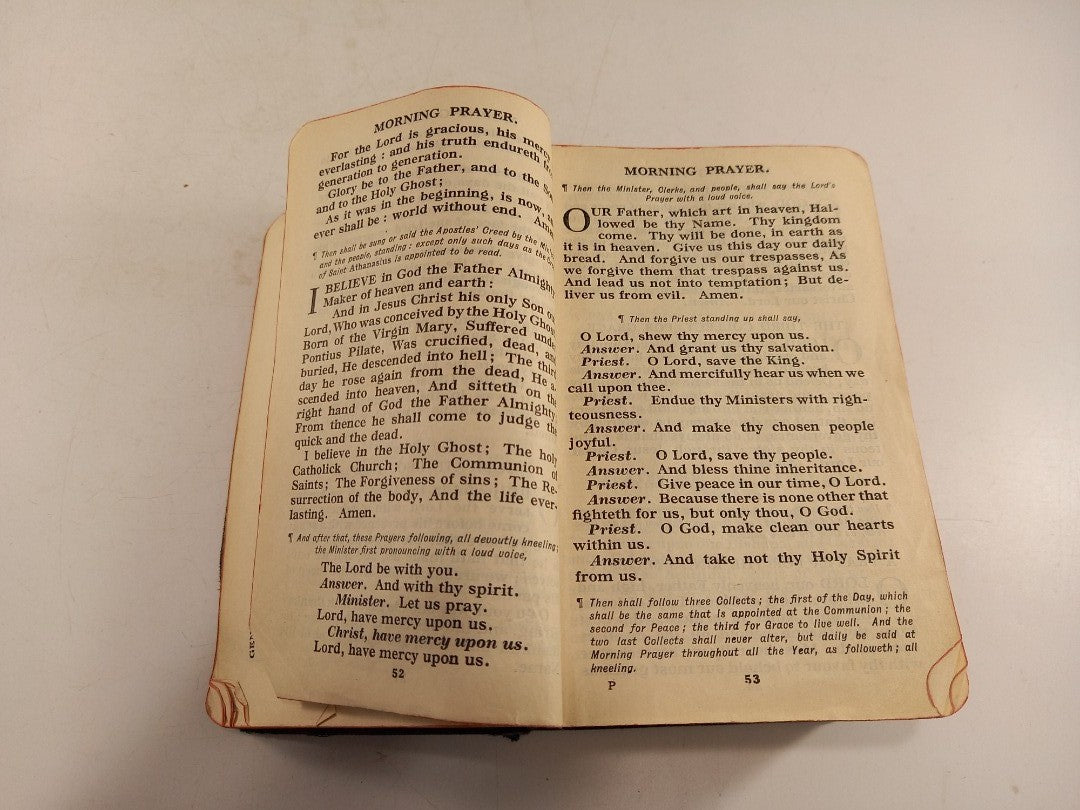 MORNING PRAYER.
For the Lord is gracious, his mercy
everlasting : and his truth endureth
generation to generation.
Glory be to the Father, and to the
and to the Holy Ghost;
As it was in the beginning, is now,
ever shall be : world without end.
¶ Then shall be sung or said the Apostles' Creed by the
and the people, standing : except only such days as the
of Saint Athanasius is appointed to be read.
I BELIEVE in God the Father Almighty
Maker of heaven and earth :
And in Jesus Christ his only Son
Lord, Who was conceived by the Holy Ghos
Born of the Virgin Mary, Suffered unde
Pontius Pilate, Was crucified, dead, and
buried, He descended into hell; The third
day he rose again from the dead, He a-
scended into heaven, And sitteth on the
right hand of God the Father Almighty
From thence he shall come to judge the
quick and the dead.
I believe in the Holy Ghost; The holy
Catholick Church; The Communion of
Saints; The Forgiveness of sins; The Re-
surrection of the body, And the life ever-
lasting. Amen.
¶ And after that, these Prayers following, all devoutly kneeling;
the Minister first pronouncing with a loud voice,
The Lord be with you.
Answer. And with thy spirit.
Minister. Let us pray.
Lord, have mercy upon us.
Christ, have mercy upon us.
Lord, have mercy upon us.
52
MORNING PRAYER.
¶ Then the Minister, Clerks, and people, shall say the Lord's
Prayer with a loud voice.
OUR Father, which art in heaven, Hal-
lowed be thy Name. Thy kingdom
come. Thy will be done, in earth as
it is in heaven. Give us this day our daily
bread. And forgive us our trespasses, As
we forgive them that trespass against us.
And lead us not into temptation; But de-
liver us from evil. Amen.
¶ Then the Priest standing up shall say,
O Lord, shew thy mercy upon us.
Answer. And grant us thy salvation.
Priest. O Lord, save the King.
Answer. And mercifully hear us when we
call upon thee.
Priest. Endue thy Ministers with righ-
teousness.
Answer. And make thy chosen people
joyful.
Priest. O Lord, save thy people.
Answer. And bless thine inheritance.
Priest. Give peace in our time, O Lord.
Answer. Because there is none other that
fighteth for us, but only thou, O God.
Priest. O God, make clean our hearts
within us.
Answer. And take not thy Holy Spirit
from us.
¶ Then shall follow three Collects; the first of the Day, which
shall be the same that is appointed at the Communion; the
second for Peace; the third for Grace to live well. And the
two last Collects shall never alter, but daily be said at
Morning Prayer throughout all the Year, as followeth; all
kneeling.
P 53